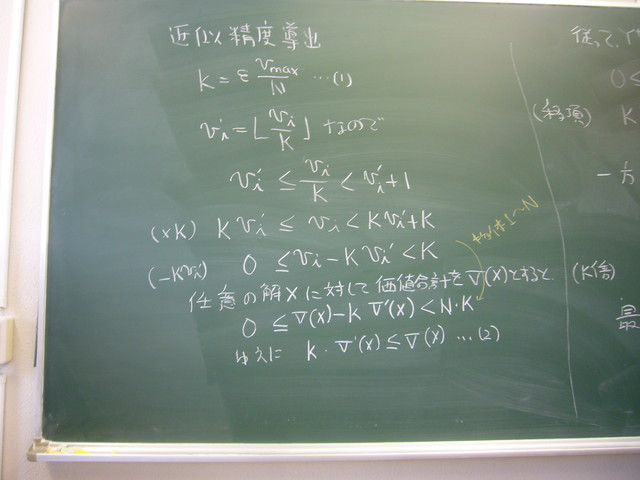 近似精度導出
K = ε vmax/N …(1)
v'i = ⌊vi/K⌋ なので
v'i ≤ vi/K < v'i+1
(×K) K v'i ≤ vi < K v'i+K
(-K v'i) 0 ≤ vi - K vi' < K
任意の解Xに対して価値合計をV(X)とすると、
0 ≤ V(X) - K V'(X) < N・K
ゆえに K・V'(X) ≤ V(X) …(2)
1〜N
従って、
0 ≤
(移項) K
一方
(K倍)
最